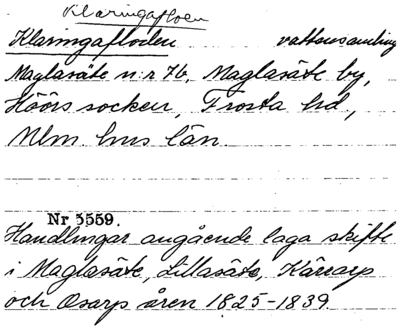 Klaringafloen
Klaringafloden vattensamling
Maglasäte n:r 76, Maglasäte by,
Höörs socken, Frosta hd,
Mlm. hus län.
Nr 5559.
Handlingar angående laga skifte
i Maglasäte, Lillasäte, Kärrarp
och Osarp åren 1825-1839.